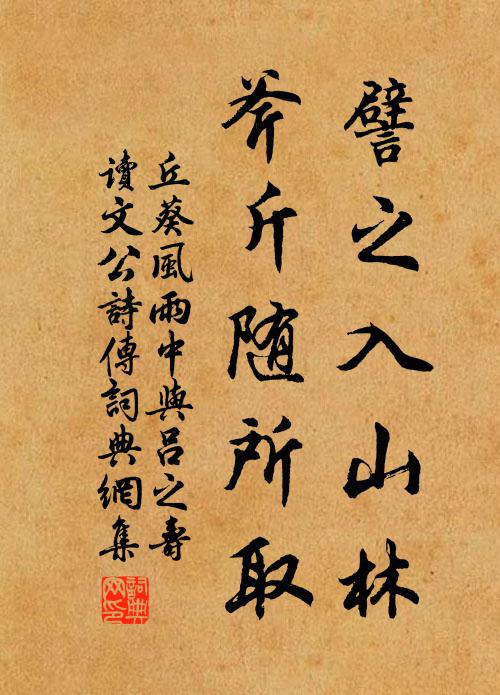 譬之入山林
斧斤随所取
丘葵風雨中與吕之壽
讀文公詩傳詞典網集
詞典
网印